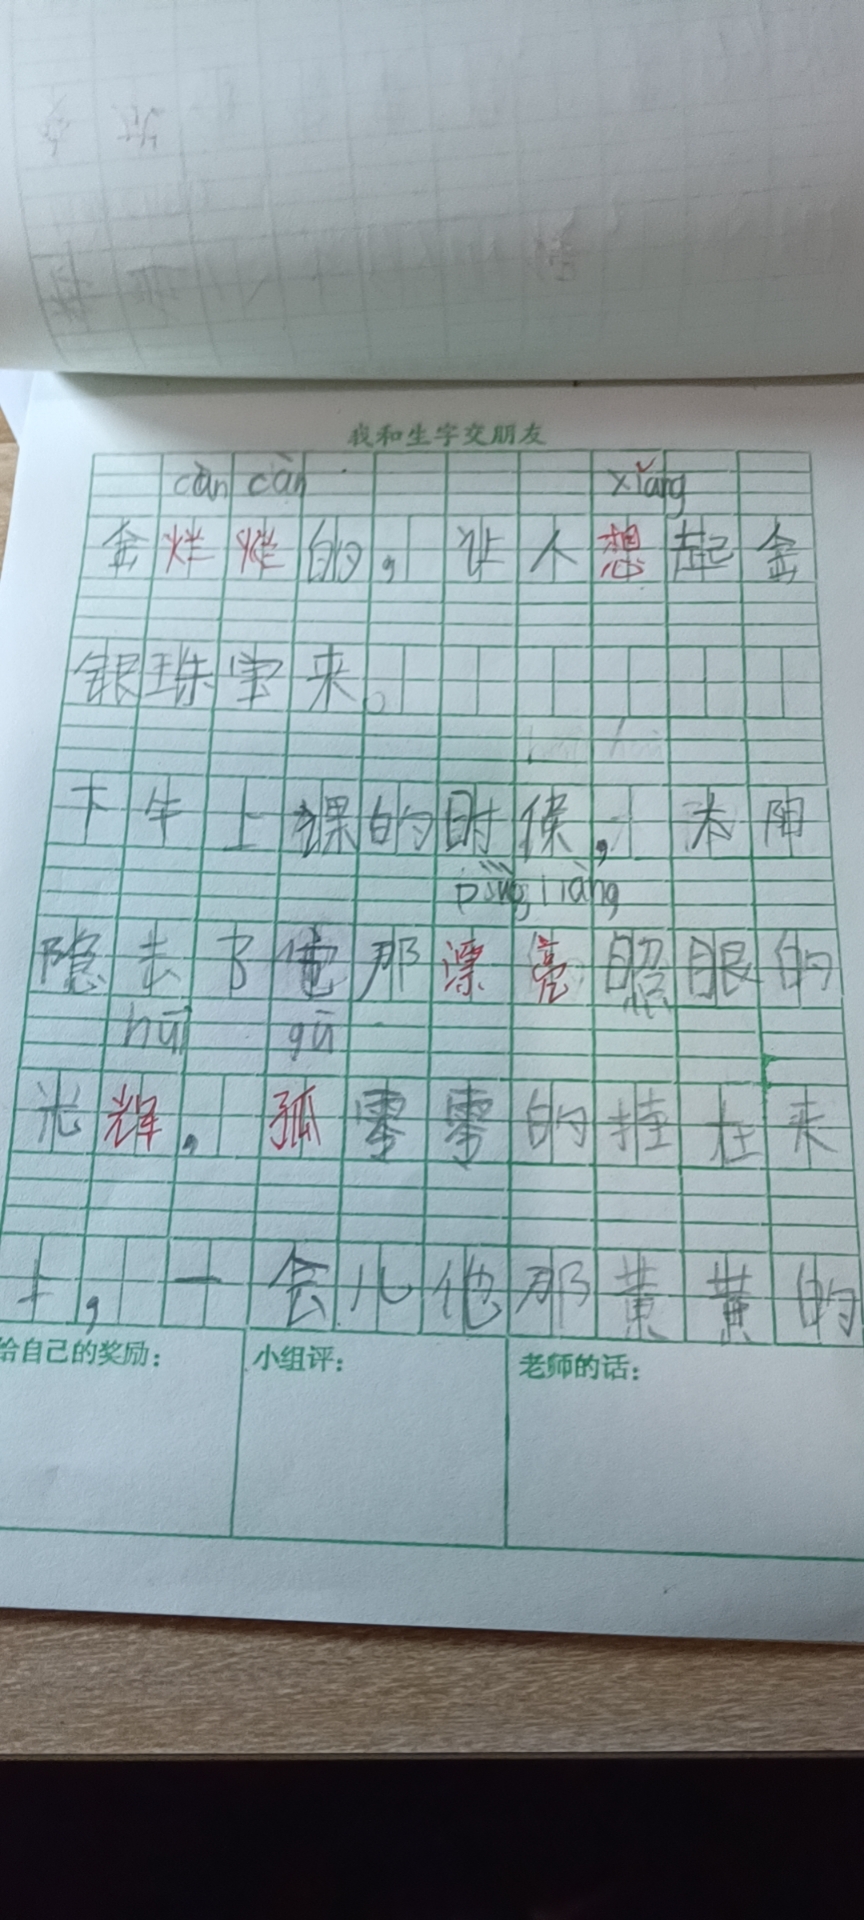 我和生字交朋友
càn càn xiǎng
金烂烂的,让人想起金
银珠宝来。
下午上课的时候,太阳
liàng
隐去了它那漂亮照眼的
huī gū
光辉,孤零零的挂在天
上,一会儿他那黄黄的
给自己的奖励: 小组评: 老师的话: